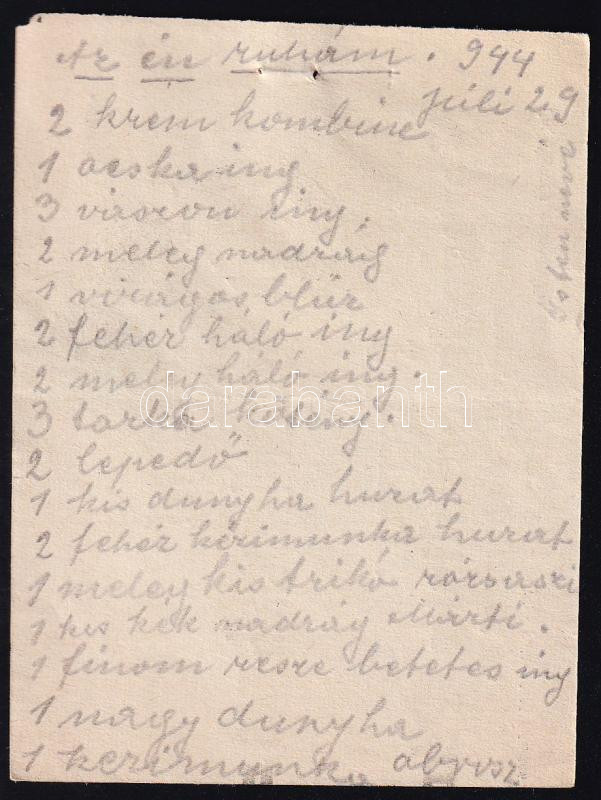 Az én ruhám. 944
júli 29
2 krém kombine
1 ocska ing
3 vászon ing.
2 meleg nadrág
1 virágos blúz
2 fehér háló ing
2 meleg háló ing.
3 tarka háling.
2 lepedő
1 kis dunyha hurat
2 fehér kézimunka hurat
1 meleg kis trikó rózsaszi
1 kis kék nadrág Márti.
1 finom resze betetes ing
1 nagy dunyha
1 kezimunka abrosz
Isten
darabanth